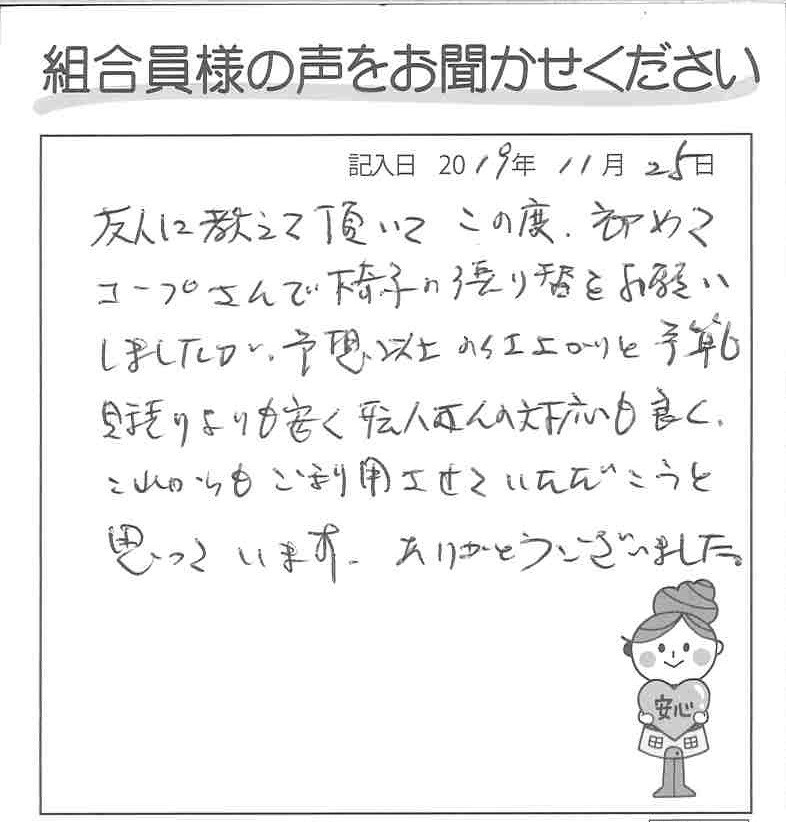 組合員様の声をお聞かせください
記入日 2019年 11月 25日
友人に教えて頂いて この度、初めて
コープさんで椅子の張り替をお願い
しましたが、予想以上の仕上がりと予算も
見積りよりも安く 職人さんの対応も良く、
これからもご利用させていただこうと
思っています。ありがとうございました。
安心